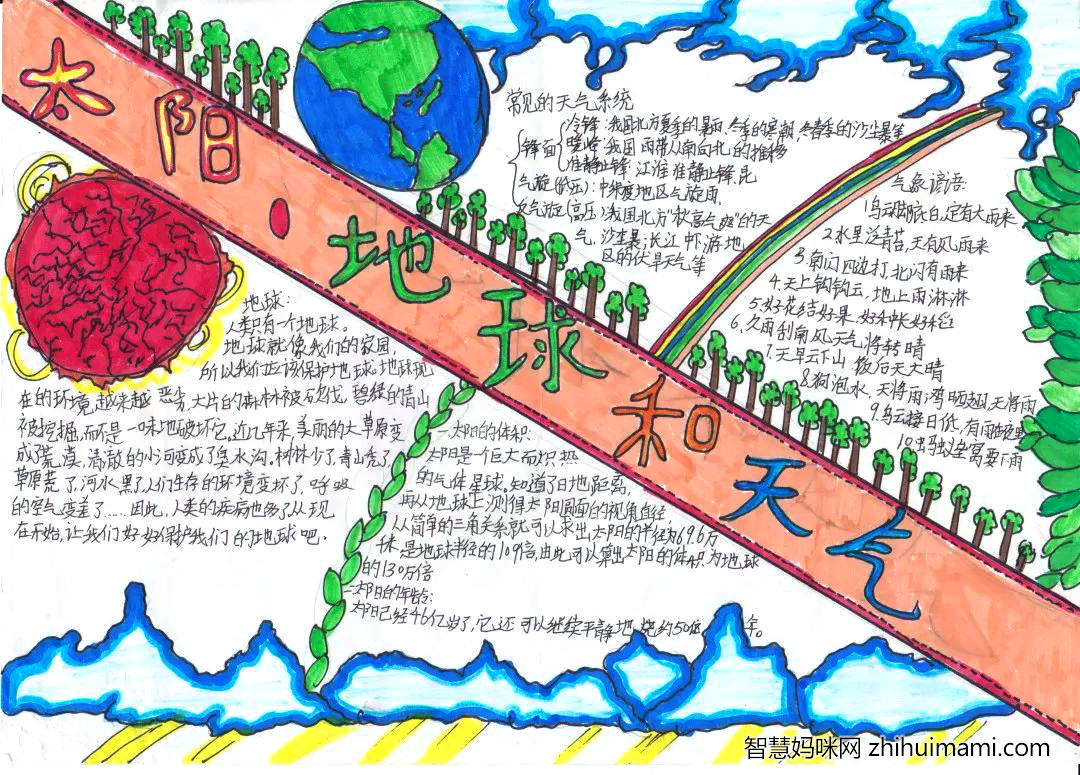 太阳·地球和天气
常见的天气系统
锋面
冷锋:我国北方夏季的暴雨、冬季的寒潮、冬春季的沙尘暴等
暖锋:我国雨带从南向北的推移
准静止锋:江淮准静止锋、昆
气旋(低压):中纬度地区气旋雨、
反气旋(高压):我国北方"秋高气爽"的天
气、沙尘暴;长江中游地
区的伏旱天气等
气象谚语:
1.乌云脚底白,定有大雨来
2.水里泛青苔,天有风雨来
3.南闪四边打,北闪有雨来
4.天上钩钩云,地上雨淋淋
5.好花结好果,好种长好稻
6.久雨刮南风,天气将转晴
7.天早云下山,饭后天大晴
8.狗泡水,天将雨;鸡晒翅,天将雨
9.乌云接日低,有雨在夜里
10.蚂蚁垒窝要下雨
地球:
人类只有一个地球。
地球就像我们的家园,
所以我们应该保护地球。地球现
在的环境越来越恶劣,大片的森林被砍伐,碧绿的青山
被挖掘,而不是一味地破坏它,近几年来,美丽的大草原变
成了荒漠,清澈的小河变成了臭水沟。树林少了,青山秃了,
草原荒了,河水黑了,人们生存的环境变坏了,呼吸
的空气变差了……因此,人类的疾病也多了。从现
在开始,让我们好好保护我们的地球吧。
一太阳的体积:
太阳是个巨大而炽热
的气体星球,知道了日地距离,
再从地球上测得太阳圆面的视角直径,
从简单的三角关系就可以求出太阳的半径为69.6万
千米,是地球半径的109倍,由此可以算出太阳的体积为地球
的130万倍
二太阳的年龄:
太阳已经46亿岁了,它还可以继续平静地烧约50亿年。
智慧妈咪网 zhihuimami.com